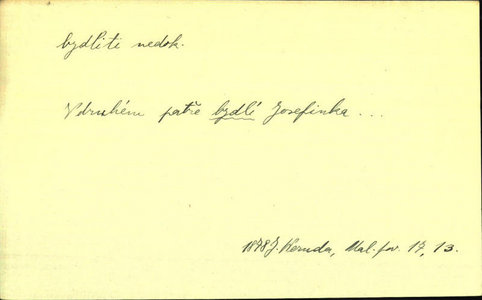 bydliti nedok.
V druhém patře bydlí Josefinka ...
1878 J. Neruda, Mal. pov. 17, 13.